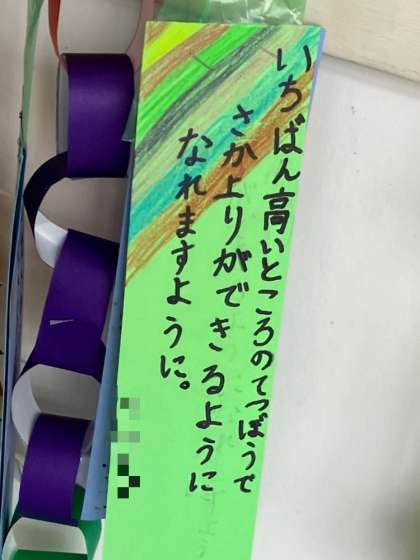 いちばん高いところのてつぼうで
さか上りができるように
なれますように。